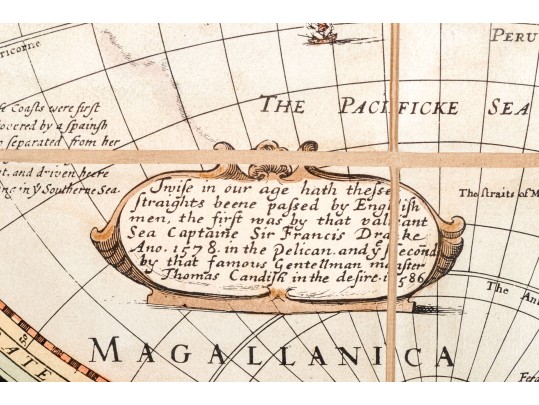 PERU
THE PACIFICKE SEA
Coasts were first
covered by a spainsh
separated from her
and driven heere
in ẙ Southerne Sea.
Twise in our age hath these
straights beene passed by English
men, the first was by that valliant
Sea Captaine Sir Francis Drake
Ano. 1578. in the Pelican. and ẙ second
by that famous Gentellman maister
Thomas Candish in the desire. 1586
The straits of M
The An
MAGALLANICA
ATE